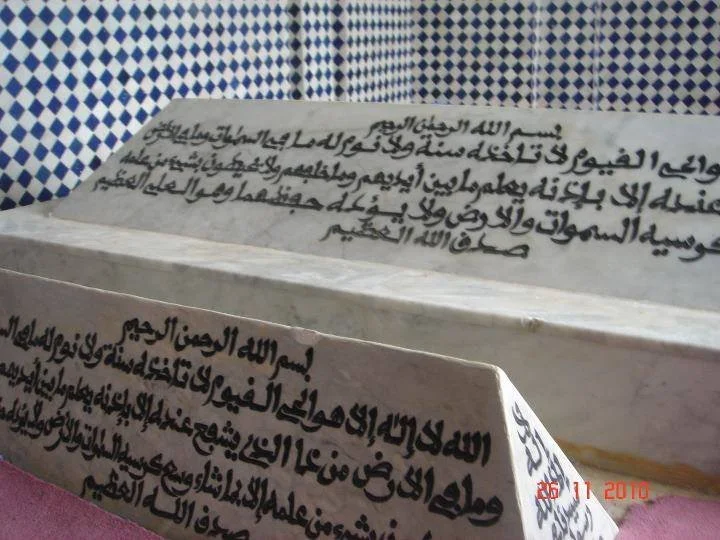 بسم الله الرحمن الرحيم
الحي القيوم لا تاخذه سنة ولا نوم له ما في السموات وما في الارض
عنده إلا بإذنه يعلم ما بين أيديهم وما خلفهم ولا يحيطون بشيء من علمه
كرسيه السموات والارض ولا يؤده حفظهما وهو العلي العظيم
صدق الله العظيم
بسم الله الرحمن الرحيم
الله لا إله إلا هو الحي القيوم لا تاخذه سنة ولا نوم له ما في
وما في الارض من ذا الذي يشفع عنده إلا بإذنه يعلم ما بين أيديهم
بشيء من علمه إلا بما شاء وسع كرسيه السموات والارض ولا يؤده
صدق الله العظيم
لا إله
26 11 2010